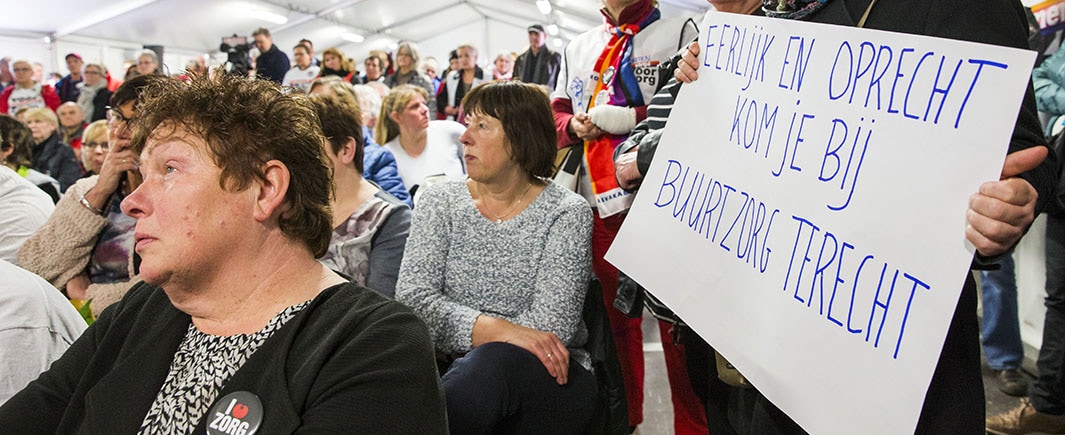 EERLIJK EN OPRECHT
KOM JE BIJ
BUURTZORG TERECHT
I
ZORG
voor
zorg